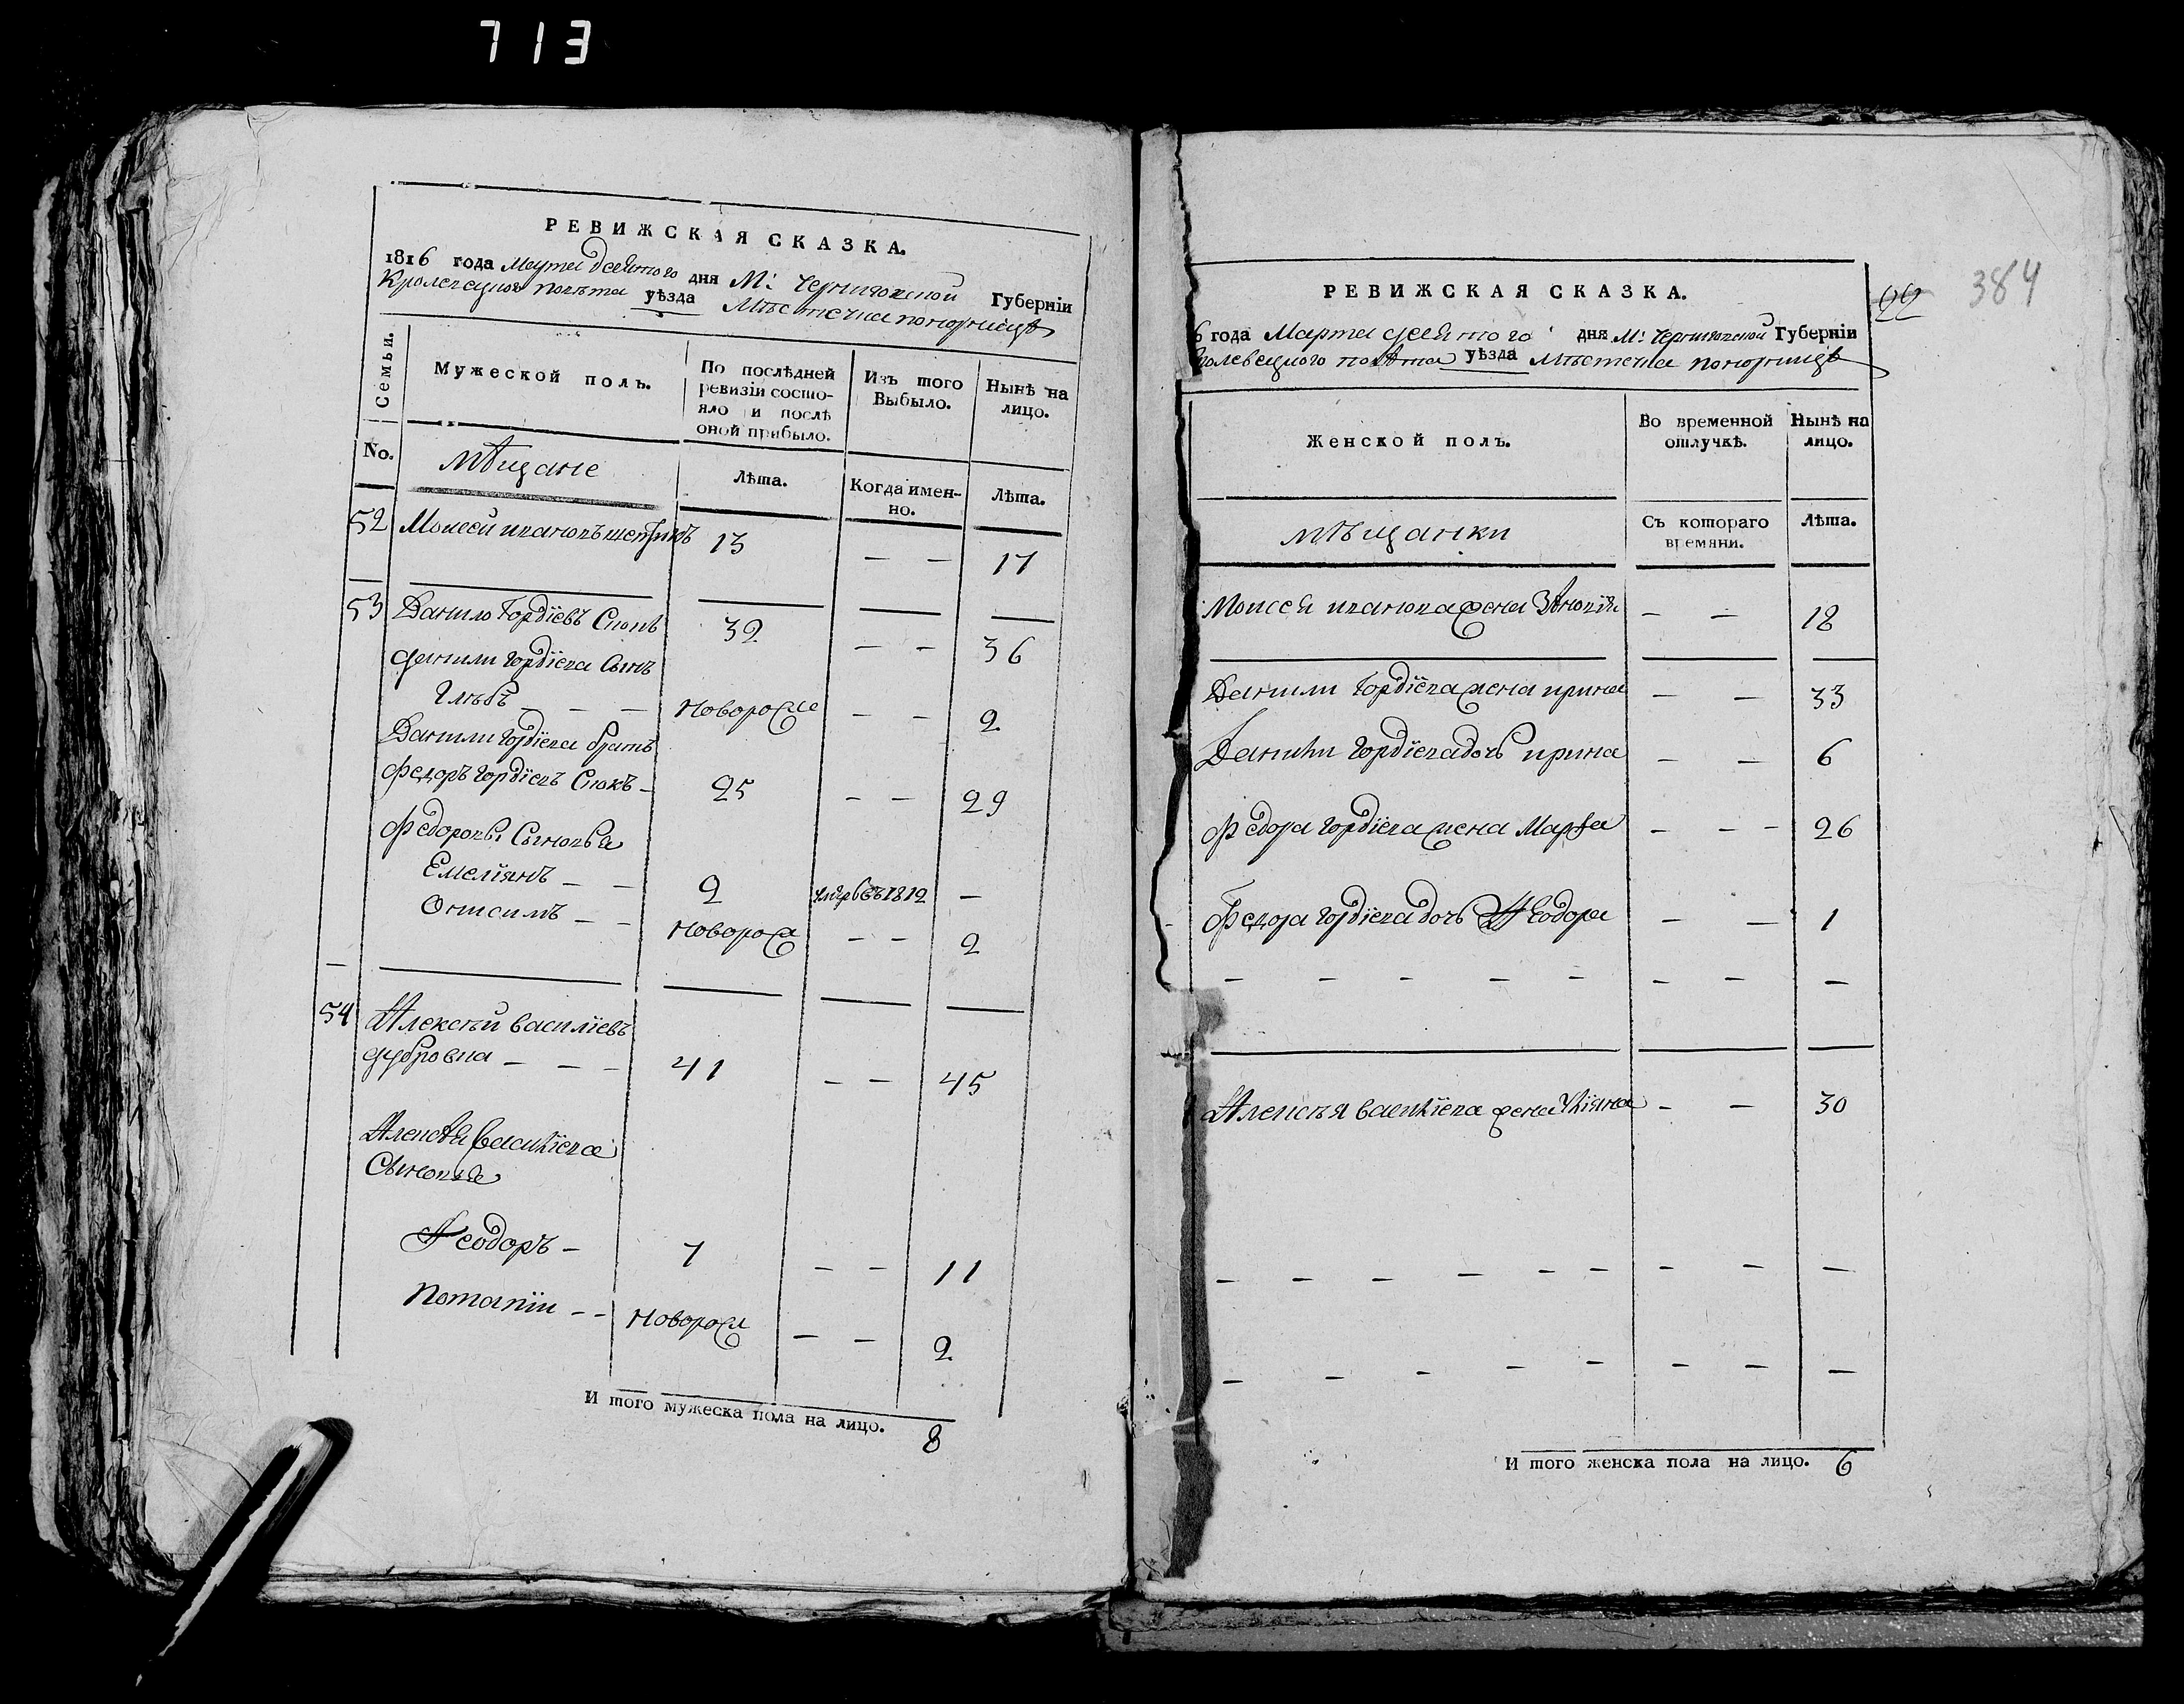 713
РЕВИЖСКАЯ СКАЗКА.
1816 года Марта десятого дня М: Черниговской Губерніи
Кролевецкого повѣта уѣзда Мѣстечка понорницѣ
Семьи.
Мужеской полъ.
По послѣдней ревизіи состо-
яло и послѣ оной прибыло.
Изъ того Выбыло.
Нынѣ на лицо.
No.
мѣщане
Лѣта.
Когда имен-
но.
Лѣта.
52 Моисей ивановъ 13 — — 17
53 Данило Гордіевъ 32 — — 36
данили гордіева Сынъ
глѣбъ — — — новоро — — 2
Данили гордіева братъ
Федоръ гордіевъ — 25 — — 29
Федоровы Сыновья
Емеліянъ — — 2 1812 —
Онисимъ — — новоро — — 2
54 Алексѣй василіевъ
дубровка — — — 41 — — 45
Алексѣя василіева
Сыновья
Ѳеодоръ — 7 — — 11
Потапіи — — новоро — — 2
И того мужеска пола на лицо. 8
384
99
РЕВИЖСКАЯ СКАЗКА.
6 года Марта десятого дня М: Черниговской Губерніи
ролевецкого повѣта уѣзда Мѣстечка понорницѣ
Женской полъ.
Во временной отлучкѣ.
Нынѣ на лицо.
мѣщанки
Съ котораго времяни.
Лѣта.
Моисея иванова жена — — 18
Данили Гордіева жена ирина — — 33
Данили гордіева дочь ирина — — 6
Федора гордіева жена Марѳа — — — 26
Федора гордіева дочь Ѳеодора — — 1
— — — — — — — —
Алексѣя василіева жена — — 30
— — — — — — — — —
— — — — — — — —
И того женска пола на лицо. 6